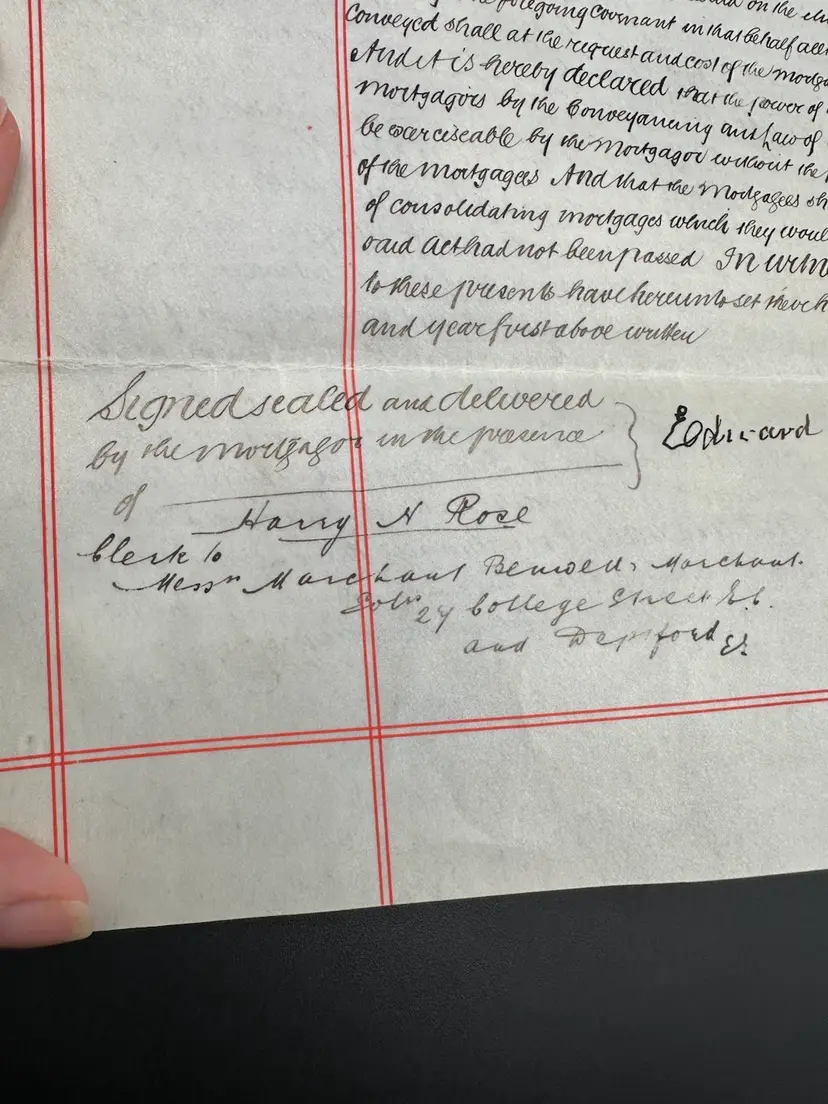 the foregoing covenant in that behalf
conveyed shall at the request and cost of the
And it is hereby declared that the power of
mortgagors by the Conveyancing and Law of
be exerciseable by the Mortgagor without the
of the Mortgagees And that the Mortgagees
of consolidating mortgages which they
said Act had not been passed In
to these presents have hereunto set their
and year first above written
Signed sealed and delivered
by the mortgagor in the presence
of
Edward
Harry N Rose
Clerk to
Messrs Marchant Benwell & Marchant
Solrs 27 College Street E.C.
and Deptford SE